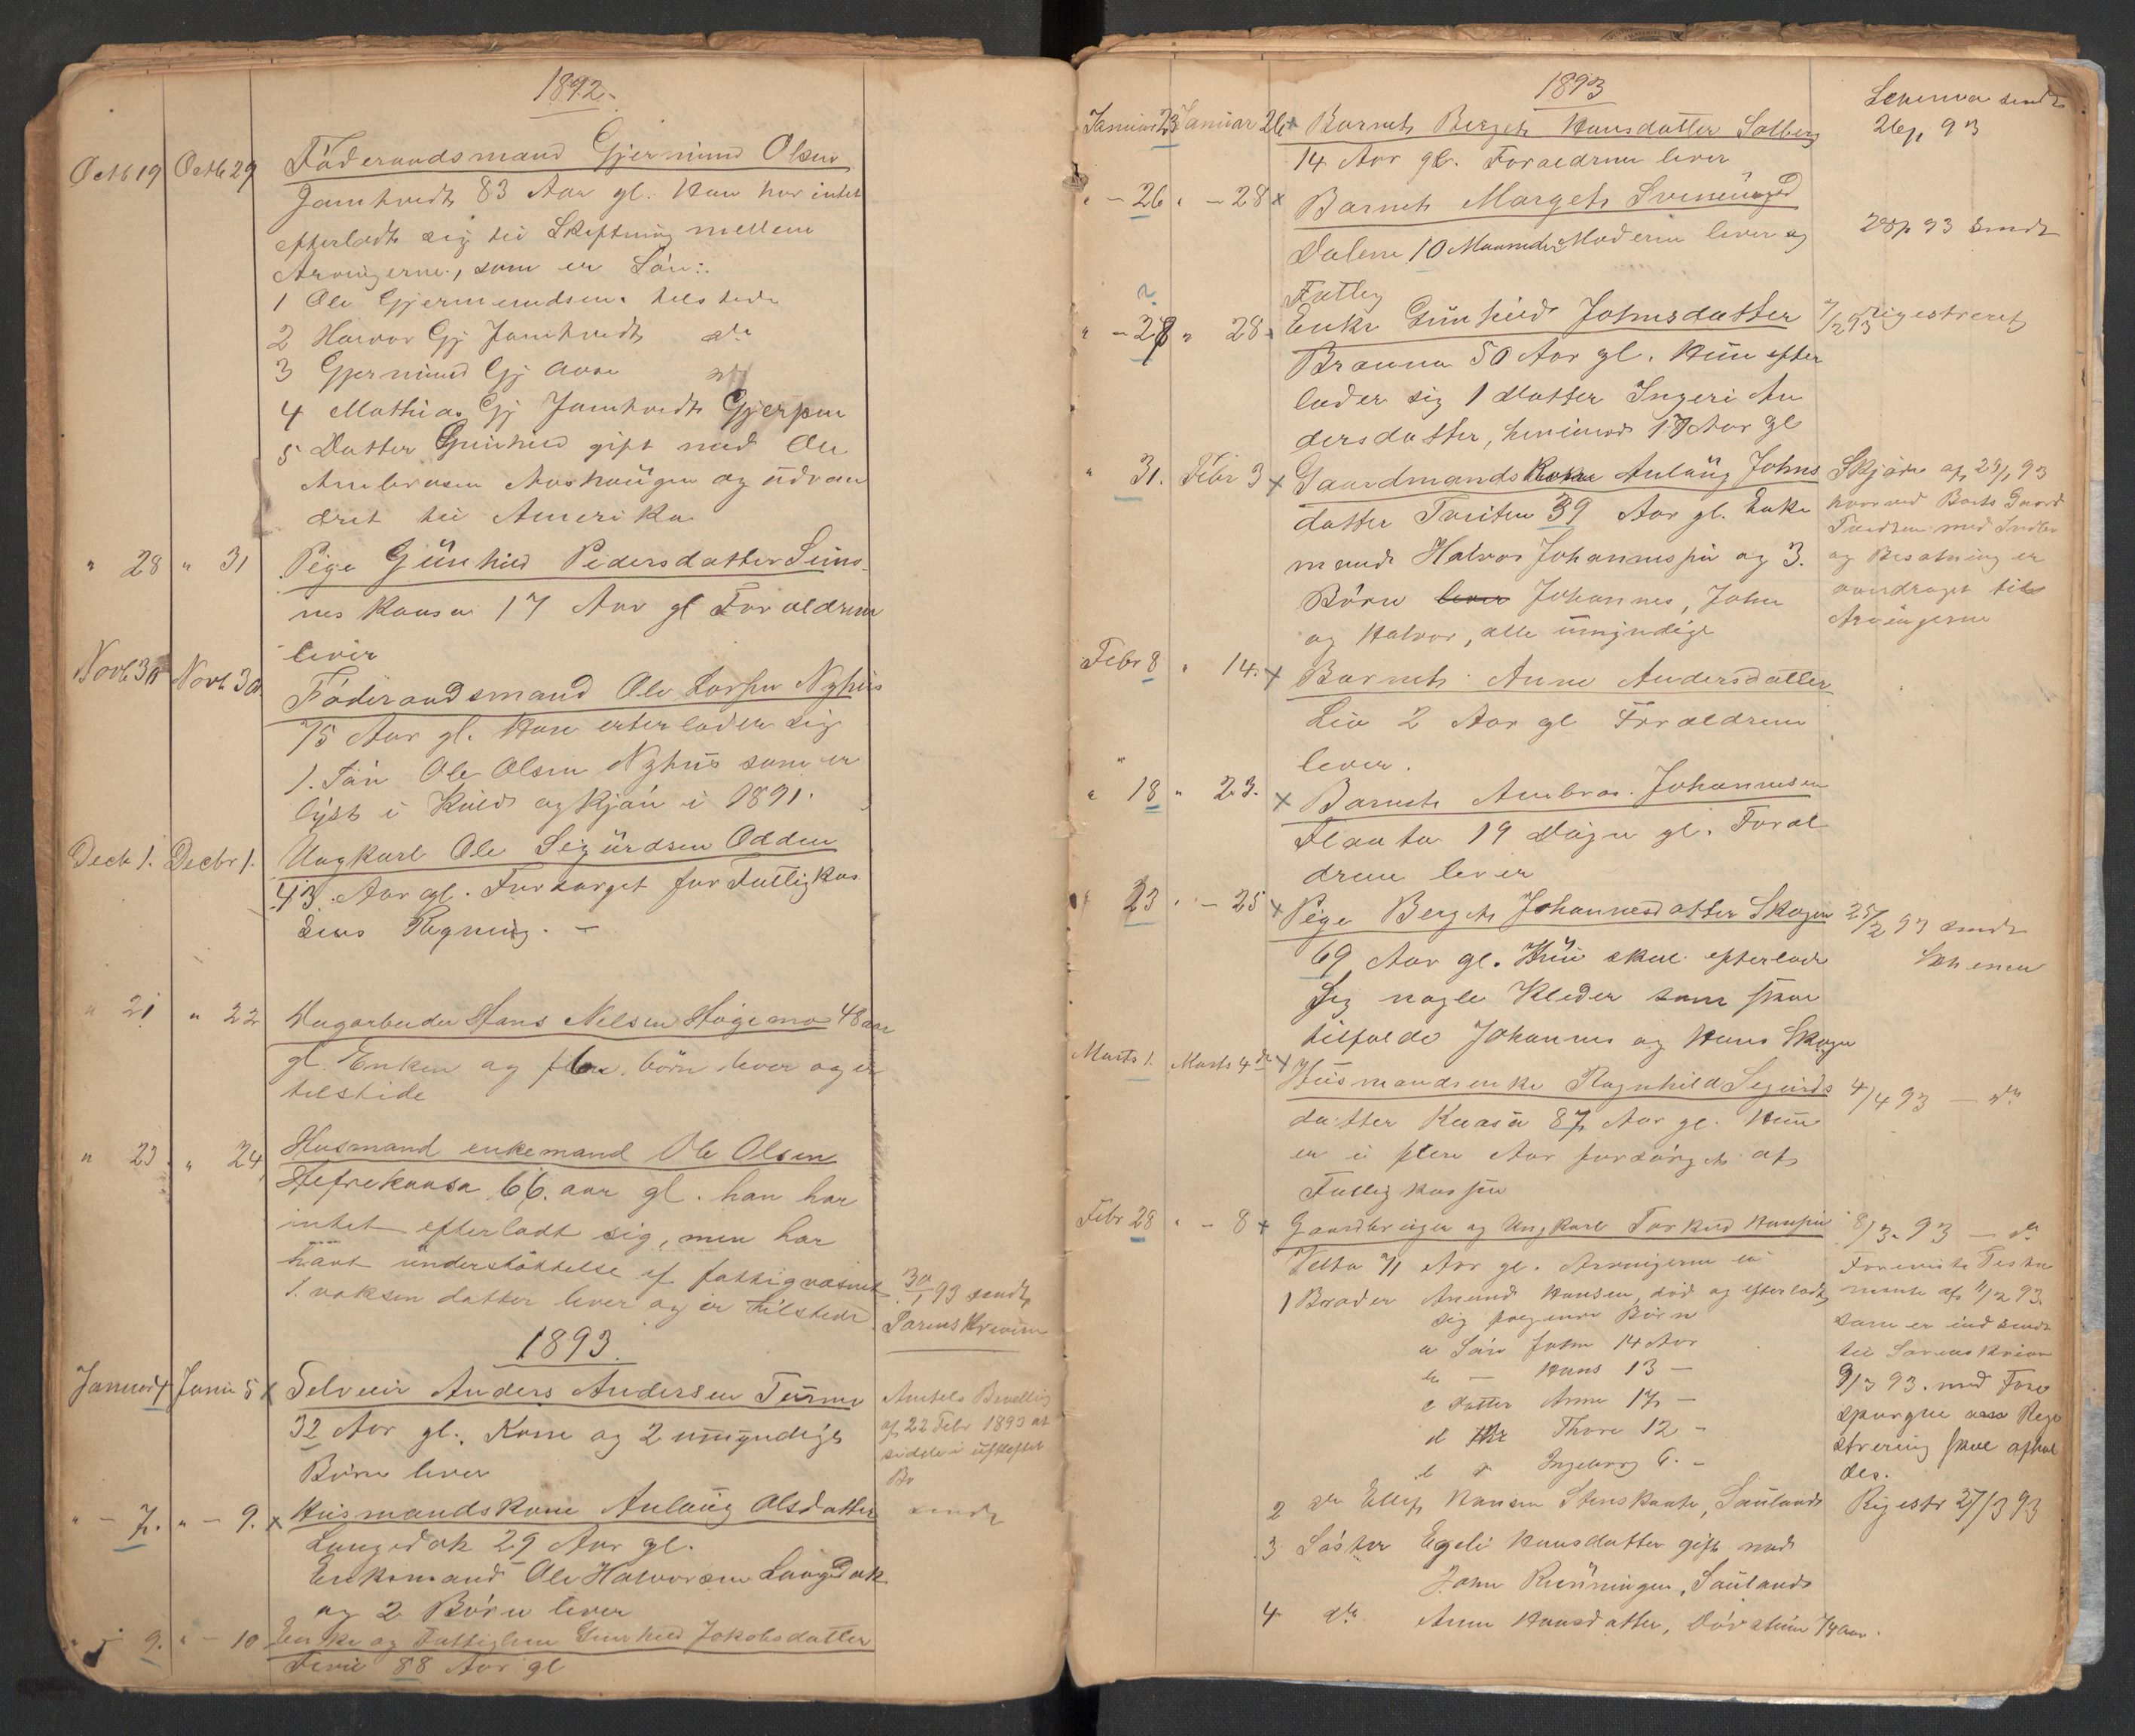 1892.
Octb 19 Octb 29 Föderaadsmand Gjermund Olsen
Jamtvedt, 83 Aar gl. Han har intet
efterladt sig til Skiftning mellem
Arvingerne, som er Sön:
1 Ole Gjermundsen tilstede
2 Halvor Gj Jamtvedt do
3 Gjermund Gj do
4 Mathias Gj Jamtvedt Gjerpen
5 Datter Gunhild gift med Ole
Ambrosen Aashaugen og udvan
dret til Amerika
" 28 " 31 Pige Gunhild Pedersdatter
17 Aar gl Forældrene
lever
Novb 30 Novb 30 Föderaadsmand Ole Larsen Nyhus
75 Aar gl. Han efterlader sig
1. Sön Ole Olsen Nyhus som er
lyst i Kuld og Kjön i 1891.
Decb 1. Decbr 1. Ungkarl Ole Sigurdsen Odden
43 Aar gl. Forsørget for Fattigkas
sens Regning. –
" 21 " 22 Hans Nilsen Høgemo 48 aar
gl. Enken og 6 børn lever og er
tilstede
" 23 " 24 Husmand enkemand Ole Olsen
Hefrekaasa 66. aar gl. han har
intet efterladt sig, men har
havt understöttelse af fattigvæsenet
1. voksen datter lever og er tilstede
30/1 93 sendt
Sorenskriveren
1893.
Januar 4 Janu 5 x Selveier Anders Andersen
32 Aar gl. Kone og 2 umyndige
Börn lever
Amtets Bevilling
af 22 Febr 1893 at
sidde i uskiftet
Bo
" – 7. " – 9. x Husmandskone Anlaug Olsdatter
sendt
Langedok 29 Aar gl.
Enkemand Ole Halvorsen Langedok
og 2 Börn lever
" 9. " – 10 Enke og Fattiglem Gunhild Jakobsdatter
88 Aar gl
1893
Schema sendt
Januar 23 Januar 26 x Barnet Berget Hansdatter Solberg
26/1 93
14 Aar gl. Forældrene lever
" – 26 " – 28 x Barnet Marget
Dalen 10 Maaneder Moderen lever og
28/1 93 sendt
Fattig
" – 28 " 28 Enke Gunhild Johnsdatter
registreret
50 Aar gl. Hun efter
lader sig 1 Datter Ingeri An
dersdatter, 17 Aar gl
" 31. Febr 3 x Gaardmandskone Anlaug Johns
datter Tveiten 39 Aar gl. Enke
mand Halvor Johannessen og 3.
Börn lever Johannes, John
og Halvor, alle umyndige
Skjöde af 29/1 93
hvorved Gaard
Tveiten med Indbo
og Besætning er
overdraget til
Arvingerne
Febr 8 " 14. x Barnet Anne Andersdatter
Lia 2 Aar gl Forældrene
lever.
" 18 " 23. x Barnet Ambros. Johannesen
Flaata 19 Dage gl. Foræl
drene lever
" 23 " – 25 x Pige Berget Johannesdatter Skogen
25/2 93 sendt
Schema
69 Aar gl. Hun skal efterlade
sig nogle Klæder som skal
tilfalde Johannes og Hans Skogen
Marts 1. Marts 4de x Husmandsenke Ragnhild Sigurds
4/4 93 – do
datter Kaasa 87 Aar gl. Hun
er i flere Aar forsörget af
Fattigkassen
Febr 28 " – 8 x Gaardbruger og Ungkarl Torkild Hansen
8/3 93 – do
Velta 71 Aar gl. Arvingerne er
1 Broder Amund Hansen, död og efterladt
sig følgende Börn
a Sön John 14 Aar
b – Hans 13 –
c Datter Anne 17 –
d Thore 12 –
e Ingeborg 6. –
2 do Ellef Hansen Stenskaate, Sauland
3 Söster Egeli Hansdatter gift med
John Rønningen, Sauland
4 do Anne Hansdatter,
Foreviste Testa
mente af 11/2 93
som er indsendt
til Sorenskriver
9/3 93. med Fore
spørgsel om Regi
strering skal afhol
des.
Registr 27/3 93